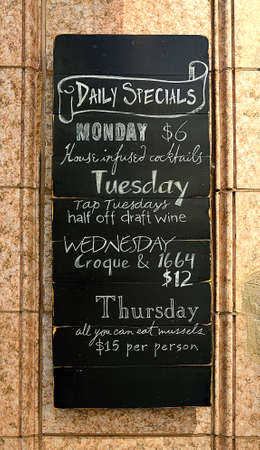 DAILY SPECIALS
MONDAY $6
House infused cocktails
Tuesday
TAP TUESDAYS
half off draft wine
WEDNESDAY
Croque & 1664
$12
Thursday
all you can eat mussels
$15 per person